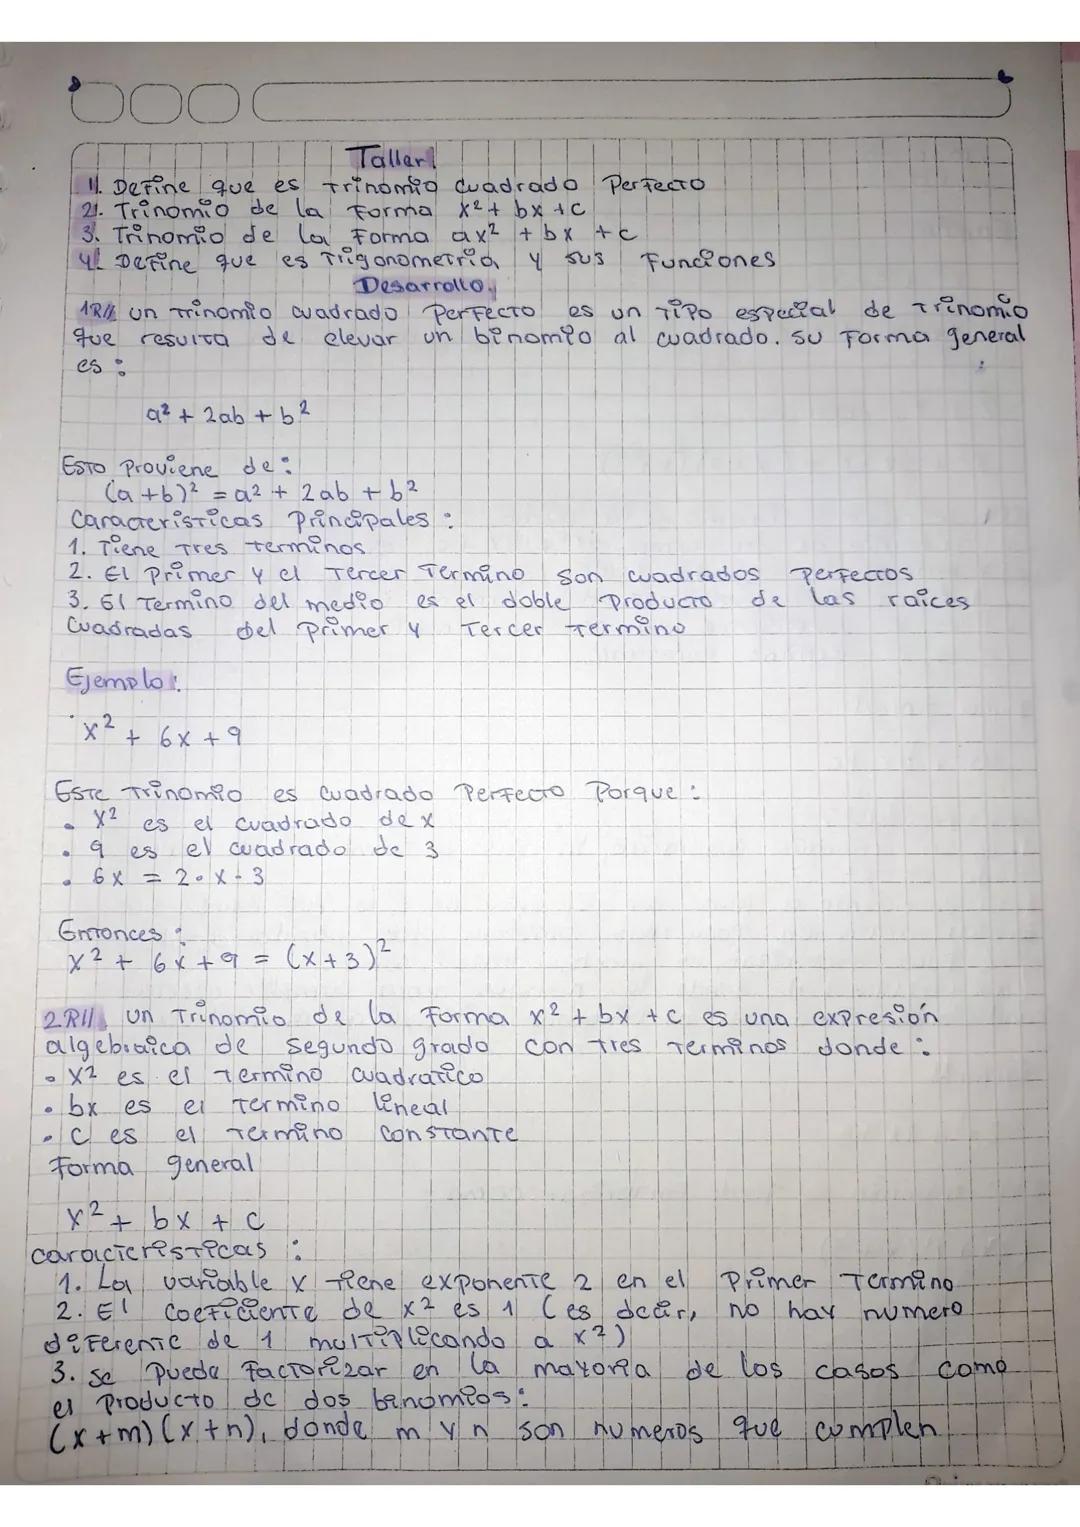 Taller
1. Define que es trinomio cuadrado Perfecto
2. Trinomio de la Forma x² + bx + c
3. Trinomio de la Forma ax² + bx + c
4. Define que es Trigonometria y sus Funciones
Desarrollo.
1R// un Trinomio cuadrado Perfecto es un Tipo especial de Trinomio
que resulta de elevar un binomio al cuadrado. su Forma general
es :
a² + 2ab + b²
Esto Proviene de :
(a + b)² = a² + 2ab + b²
Caracteristicas Principales :
1. Tiene tres terminos
2. El Primer y el Tercer Termino son cuadrados Perfectos
3. El Termino del medio es el doble Producto de las raices
Cuadradas del Primer y Tercer termino
Ejemplo :
x² + 6x + 9
Este Trinomio es cuadrado Perfecto Porque :
• x² es el cuadrado de x
• 9 es el cuadrado de 3
• 6x = 2 • x - 3
Entonces :
x² + 6x + 9 = (x + 3)²
2R// un Trinomio de la Forma x² + bx + c es una expresión
algebraica de segundo grado con tres Terminos donde :
• x² es el termino cuadratico
• bx es el Termino lineal
• c es el Termino constante
Forma general
x² + bx + c
caracteristicas :
1. La variable x tiene exponente 2 en el Primer Termino
2. El coeficiente de x² es 1 (es decir, no hay numero
diferente de 1 multiplicando a x²)
3. se Puede Factorizar en la mayoria de los casos como
el Producto de dos binomios :
(x + m) (x + n), donde m y n son numeros que cumplen